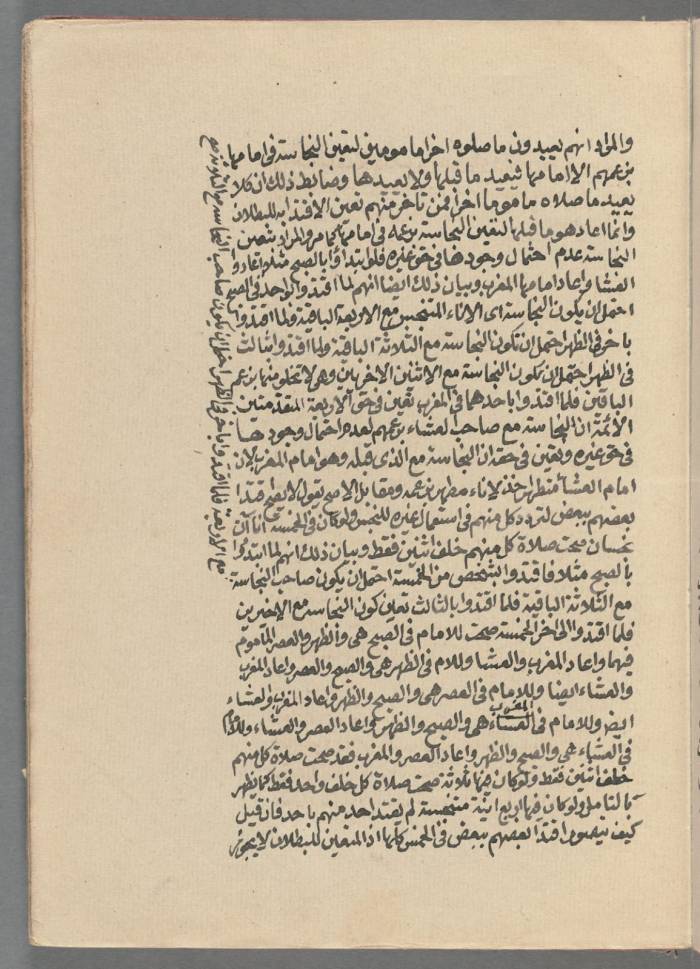 والمراد انهم يعيدون ما صلوه اخرا مامومين لتعين النجاسة في امامها
بزعمهم الا امامها فيعيد ما قبلها ولا يعيدها وضابط ذلك ان كلا
يعيد ما صلاه ماموما اخرا فمن تاخر منهم تعين الاقتدا به للبطلان
وانما اعاد هو ما قبلها لتعين النجاسة بزعمه في امامها كما مر والمراد بتعين
النجاسة عدم احتمال وجودها في حق غيره فلو ابتداوا بالصبح مثلا اعادوا
العشا واعاد امامها المغرب وبيان ذلك ايضا انهم لما اقتدوا بواحد في الصبح
احتمل ان يكون النجاسة اى الاناء المتنجس مع الاربعة الباقية ولما اقتدوا
باخر في الظهر احتمل ان تكون النجاسة مع الثلاثة الباقية ولما اقتدوا بثالث
في الظهر احتمل ان تكون النجاسة مع الاثنين الاخريين وهى لا تخلو منهما بزعم
الباقين فلما اقتدوا باحدهما في المغرب تعين في حق الاربعة المتقدمتين
الائمة ان النجاسة مع صاحب العشاء بزعمهم لعدم احتمال وجودها
في حق غيره وتعين في حقه ان النجاسة مع الذى قبله وهو امام المغرب لان
امام العشا متطهر اخذ لاناء مطهر بزعمه ومقابل الاصح يقول لا يصح اقتدا
بعضهم ببعض لتردد كل منهم في استعمال غيره للنجس ولو كان في الخمسة اناان
نجسان صحت صلاة كل منهم خلف اثنين فقط وبيان ذلك انهم لما ابتدوا
بالصبح مثلا فاقتدوا بشخص من الخمسة احتمل ان يكون صاحب النجاسة
مع الثلاثة الباقية فلما اقتدوا بالثالث تعين كون النجاسة مع الاخيرين
فلما اقتدوا الى اخر الخمسة صحت للامام في الصبح هى والظهر والعصر الماموم
فيهما واعاد المغرب والعشا وللامام في الظهر هى والصبح والعصر واعاد المغرب
والعشاء ايضا وللامام في العصر هى والصبح والظهر واعاد المغرب والعشاء
ايض وللامام في المغرب هى والصبح والظهر واعاد العصر والعشاء وللامام
في العشاء هى والصبح والظهر واعاد العصر والمغرب فقد صحت صلاة كل منهم
خلف اثنين فقط ولو كان فيها ثلاثة صحت صلاة كل خلف واحد فقط كما يظهر
بالتامل ولو كان فيها اربع انية متنجسة لم يقتد احد منهم باحد فان قيل
كيف يتصور اقتدا بعضهم ببعض في الخمس كلها اذ المتعين للبطلان لا يجوز
مع الاربعة فلما اقتدوا باخر في الظهر احتمل ان يكون صاحب النجاسة